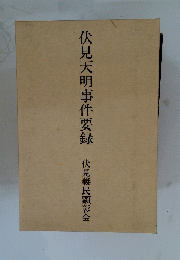 伏見天明事件要録
伏見義民顕彰会